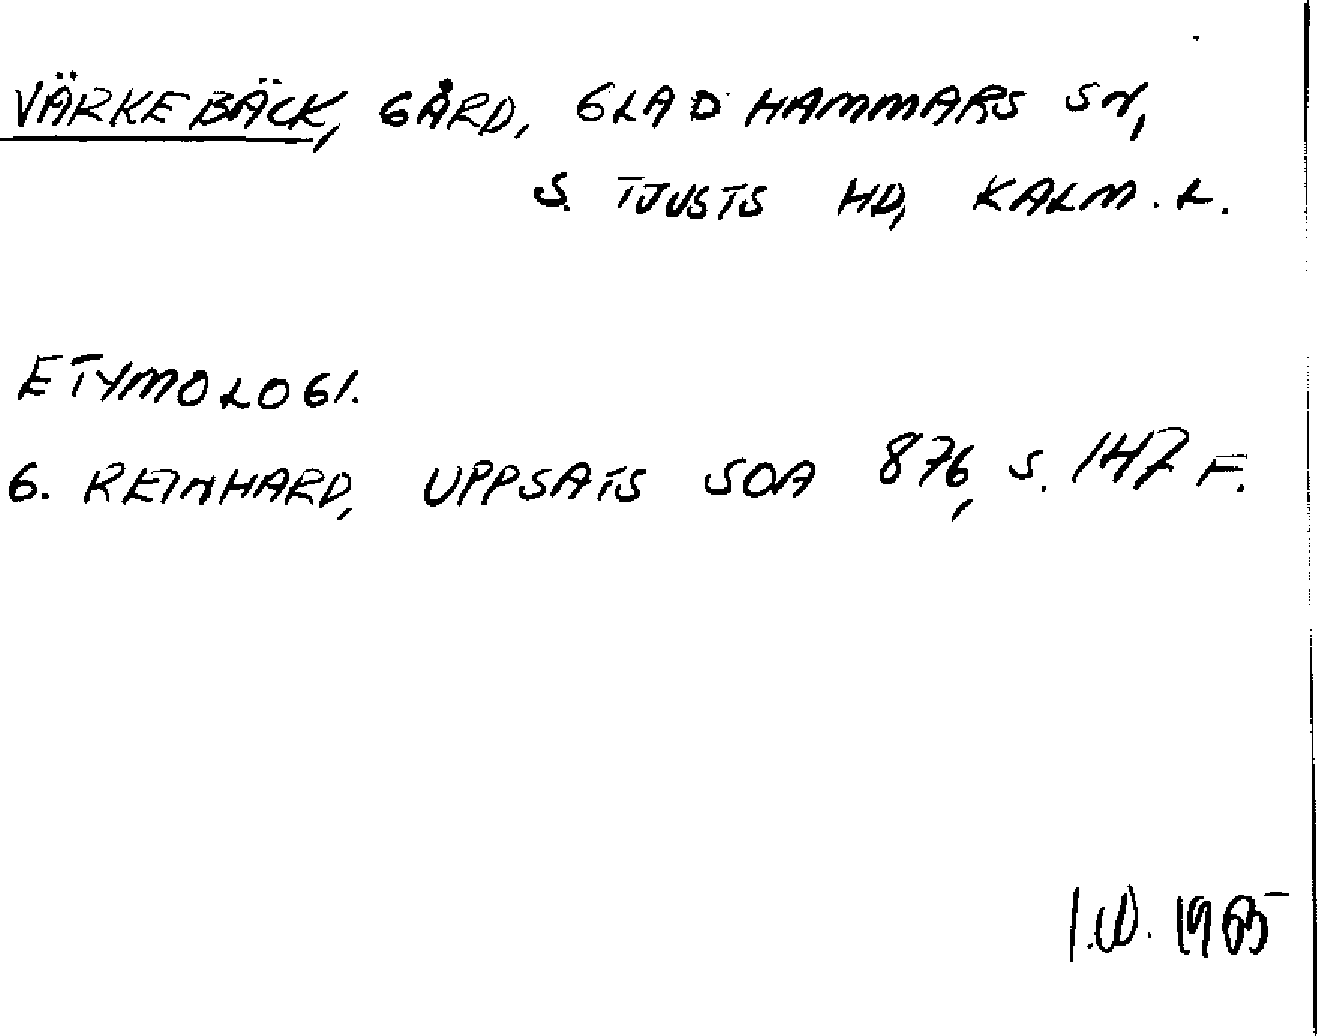 VÄRKEBÄCK, GÅRD, GLADHAMMARS SN,
S. TJUSTS HD, KALM. L.
ETYMOLOGI.
G. REINHARD, UPPSATS SOA 876, S. 147 F.
I.W. 1965